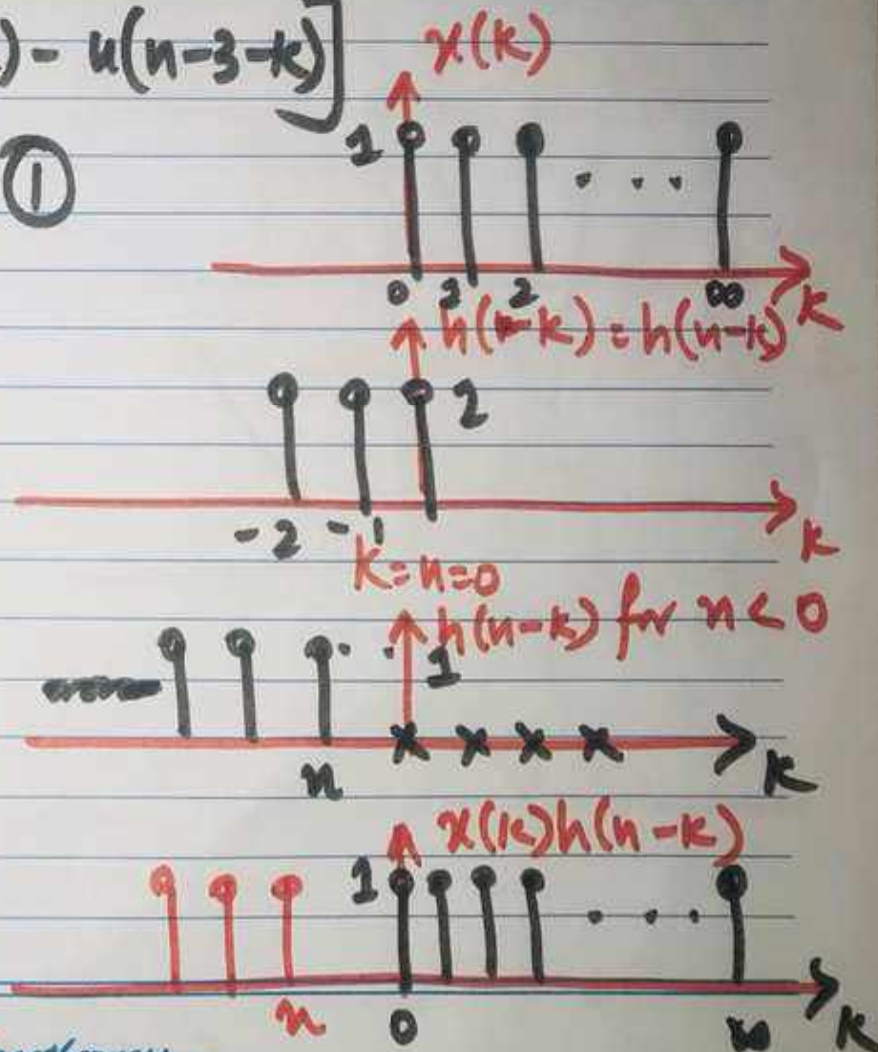 ) - u(n-3-k)]
x(k)
①
1
0 2 2 ∞ k
h(n-k) = h(n-k)
2
-2 -1 k
k=n=0
h(n-k) for n < 0
1
n k
x(k)h(n-k)
1
n 0 ∞ k